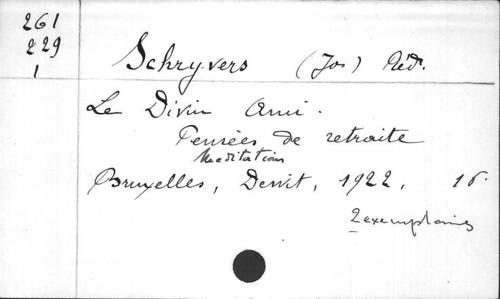 261
229
1
Schryvers (Jos) Réd.
Le Divin Ami.
Pensées de retraite
Meditations
Bruxelles, Dewit, 1922, 16
2 exemplaires